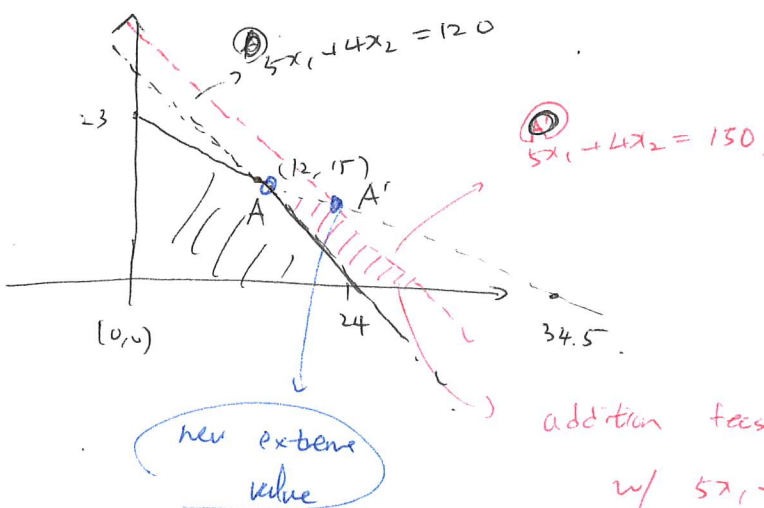 5x₁ + 4x₂ = 120
23
(12, 15)
5x₁ + 4x₂ = 150
A
A'
(0,0)
24
34.5
new extreme
value
addition feas
w/ 5x₁